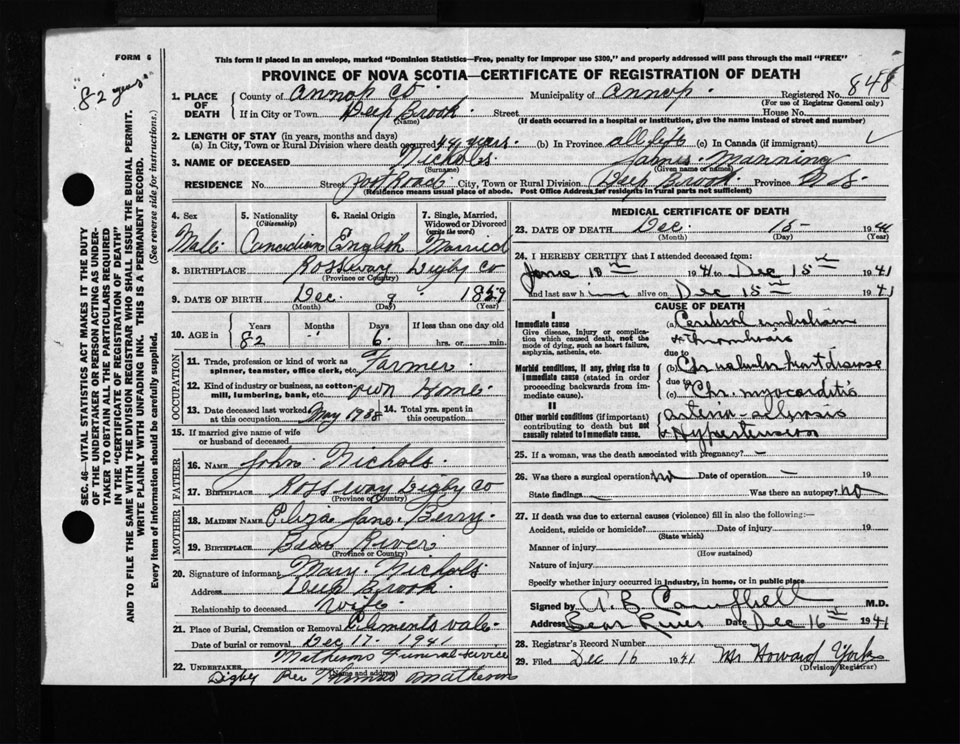 FORM 6
This form if placed in an envelope, marked "Dominion Statistics—Free, penalty for improper use $300," and properly addressed will pass through the mail "FREE"
PROVINCE OF NOVA SCOTIA—CERTIFICATE OF REGISTRATION OF DEATH
"82 years"
SEC. 46—VITAL STATISTICS ACT MAKES IT THE DUTY
OF THE UNDERTAKER OR PERSON ACTING AS UNDER-
TAKER TO OBTAIN ALL THE PARTICULARS REQUIRED
IN THE "CERTIFICATE OF REGISTRATION OF DEATH"
AND TO FILE THE SAME WITH THE DIVISION REGISTRAR WHO SHALL ISSUE THE BURIAL PERMIT.
WRITE PLAINLY WITH UNFADING INK. THIS IS A PERMANENT RECORD.
Every item of information should be carefully supplied. (See reverse side for instructions.)
1. PLACE OF DEATH County of Annap Co. Municipality of Annap. Registered No. 848
(For use of Registrar General only)
If in City or Town Deep Brook Street House No.
(Name) (If death occurred in a hospital or institution, give the name instead of street and number)
2. LENGTH OF STAY (in years, months and days)
(a) In City, Town or Rural Division where death occurred 44 years. (b) In Province all life (c) In Canada (if immigrant)
3. NAME OF DECEASED Nichols. James Manning
(Surname) (Given name or names)
RESIDENCE No. Street Post Road City, Town or Rural Division Deep Brook Province N.S.
(Residence means usual place of abode. Post Office Address for residents in rural parts not sufficient)
4. Sex 5. Nationality (Citizenship) 6. Racial Origin 7. Single, Married, Widowed or Divorced (write the word)
Male Canadian English Married
8. BIRTHPLACE Rossway Digby Co
(Province or Country)
9. DATE OF BIRTH Dec. 9 1859
(Month) (Day) (Year)
10. AGE in Years Months Days If less than one day old
82 " 6 hrs. or min.
OCCUPATION
11. Trade, profession or kind of work as spinner, teamster, office clerk, etc. Farmer
12. Kind of industry or business, as cotton-mill, lumbering, bank, etc. own Home
13. Date deceased last worked at this occupation May 1938 14. Total yrs. spent in this occupation
15. If married give name of wife or husband of deceased
FATHER
16. NAME John Nichols
17. BIRTHPLACE Rossway Digby Co
(Province or Country)
MOTHER
18. MAIDEN NAME Eliza Jane Berry
19. BIRTHPLACE Bear River
(Province or Country)
20. Signature of informant Mary Nichols
Address Deep Brook
Relationship to deceased wife
21. Place of Burial, Cremation or Removal Clementsvale
Date of burial or removal Dec 17. 1941
22. UNDERTAKER Mathesons Funeral Service
(Name and address)
Digby Per Matheson
MEDICAL CERTIFICATE OF DEATH
23. DATE OF DEATH Dec. 15 1941
(Month) (Day) (Year)
24. I HEREBY CERTIFY that I attended deceased from:
June 10th 1941 to Dec 15th 1941
and last saw him alive on Dec 15th 1941
CAUSE OF DEATH
I
Immediate cause (a) Cerebral embolism
Give disease, injury or complication which caused death, not the mode of dying, such as heart failure, asphyxia, asthenia, etc. + Thrombosis
due to
Morbid conditions, if any, giving rise to immediate cause (stated in order proceeding backwards from immediate cause). (b) Chr valvular heart disease
due to
(c) Chr. myocarditis
II
Other morbid conditions (if important) contributing to death but not causally related to immediate cause. arterio-sclerosis
+ Hypertension
25. If a woman, was the death associated with pregnancy? –
26. Was there a surgical operation? No Date of operation – 19
State findings – Was there an autopsy? no
27. If death was due to external causes (violence) fill in also the following:—
Accident, suicide or homicide? Date of injury 19
(State which)
Manner of injury
(How sustained)
Nature of injury
Specify whether injury occurred in industry, in home, or in public place
Signed by A. B. Campbell M.D.
Address Bear River Date Dec 16th 1941
28. Registrar's Record Number
29. Filed Dec 16 1941 Mr Howard York
(Division Registrar)